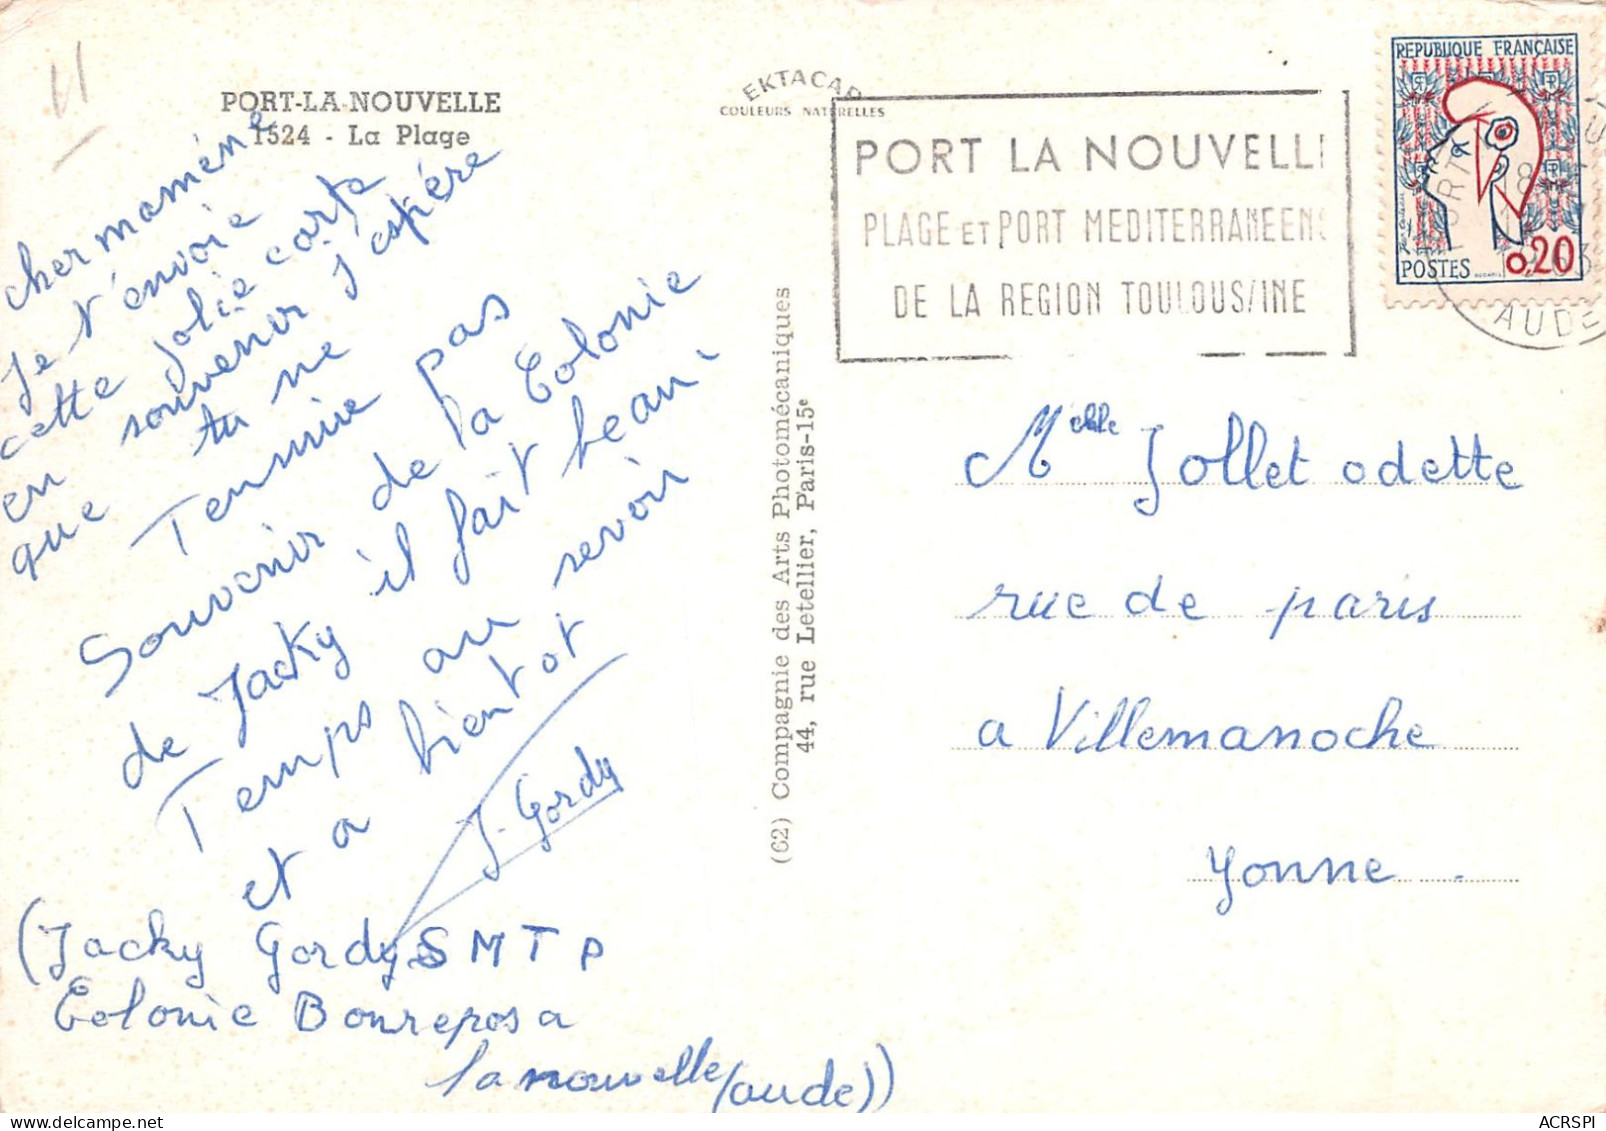 PORT-LA-NOUVELLE
1524 - La Plage
EKTACAP
COULEURS NATURELLES
PORT LA NOUVELLE
PLAGE ET PORT MEDITERRANEENS
DE LA REGION TOULOUSAINE
REPUBLIQUE FRANÇAISE
POSTES 0.20
AUDE
cher maméne
Je t'envoie
cette jolie carte
en souvenir j'espére
que tu ne
Tennuie pas
Souvenir de la Colonie
de Jacky il fait beau
Temps au revoir
et a bientot
J. Gordy
(Jacky Gordy S M T P
Colonie Bonrepos a
la nouvelle (aude))
(62) Compagnie des Arts Photomécaniques
44, rue Letellier, Paris-15e
Melle Jollet odette
rue de paris
a Villemanoche
Yonne.
ACRSPI